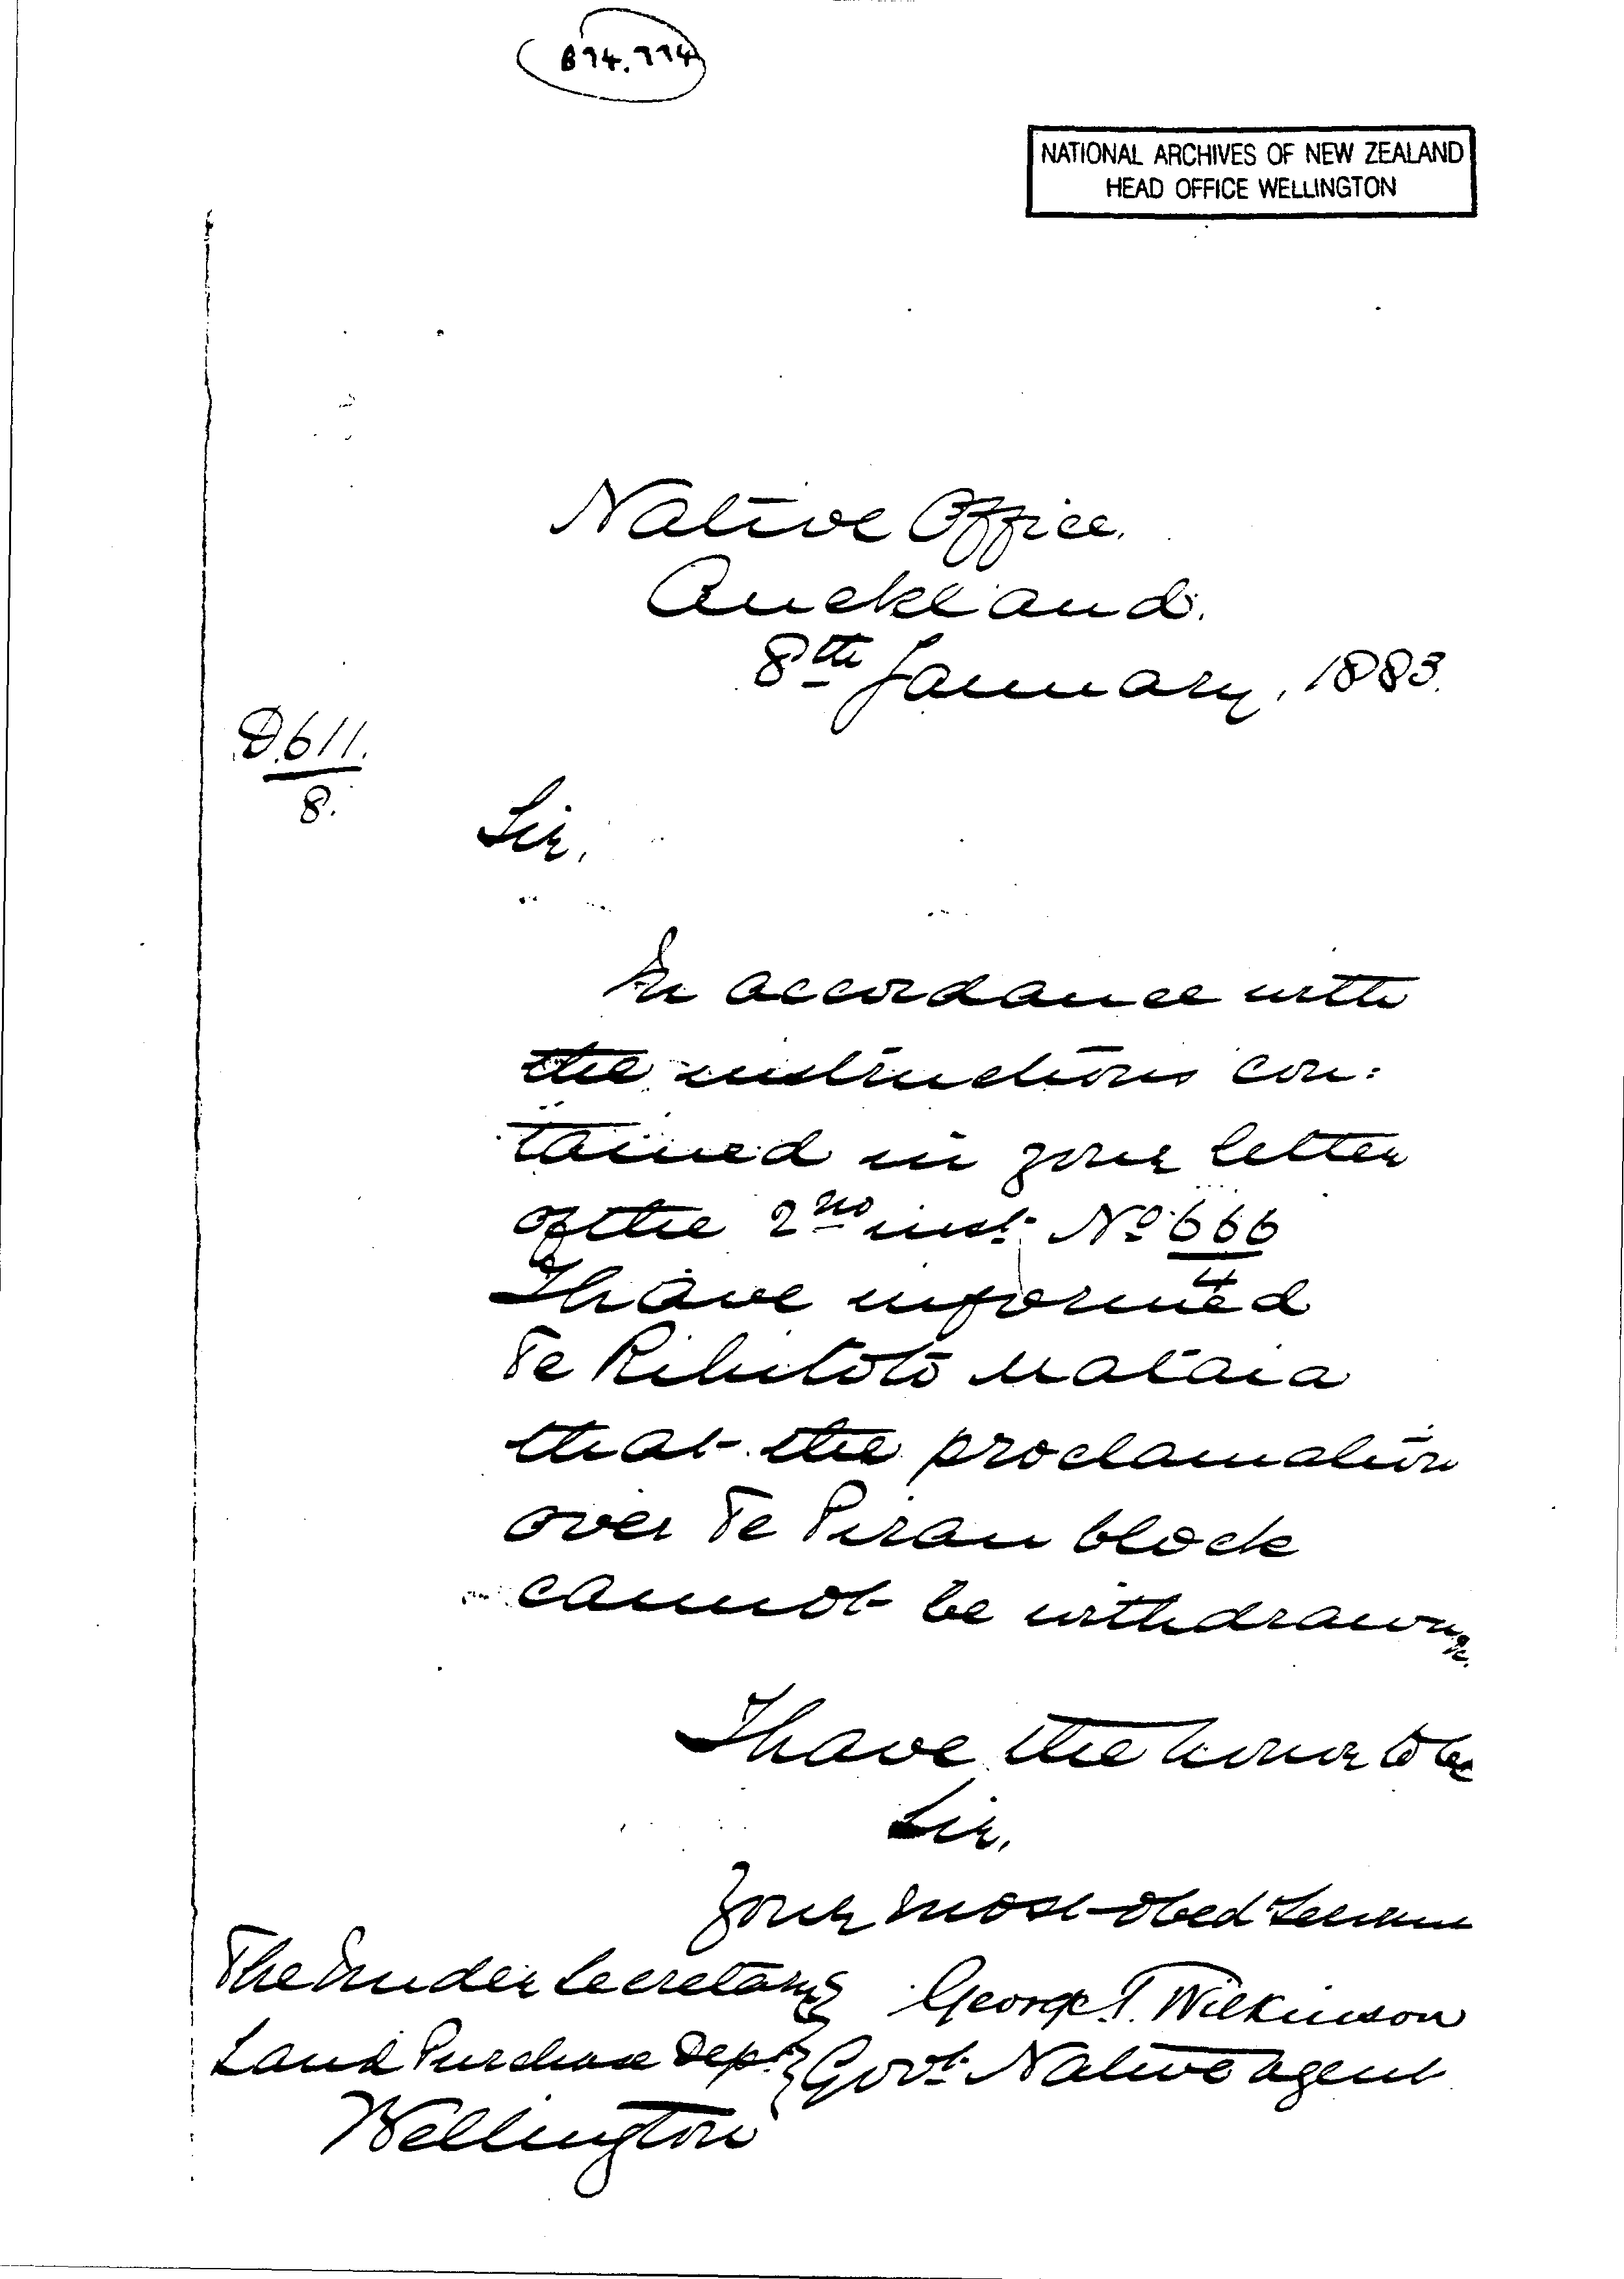 B74.774
NATIONAL ARCHIVES OF NEW ZEALAND
HEAD OFFICE WELLINGTON
Native Office.
Auckland.
8th January, 1883.
D.611.
8.
Sir,
In accordance with
the instructions con:
tained in your letter
of the 2nd inst. No 666
4
I have informed
Te Rihitoto Mataia
that the proclamation
over Te Pirau block
cannot be withdrawn
I have the honor to be
Sir,
Your most obed Servant
The Under Secretary
George T. Wilkinson
Land Purchase Dept
Govt Native Agent
Wellington